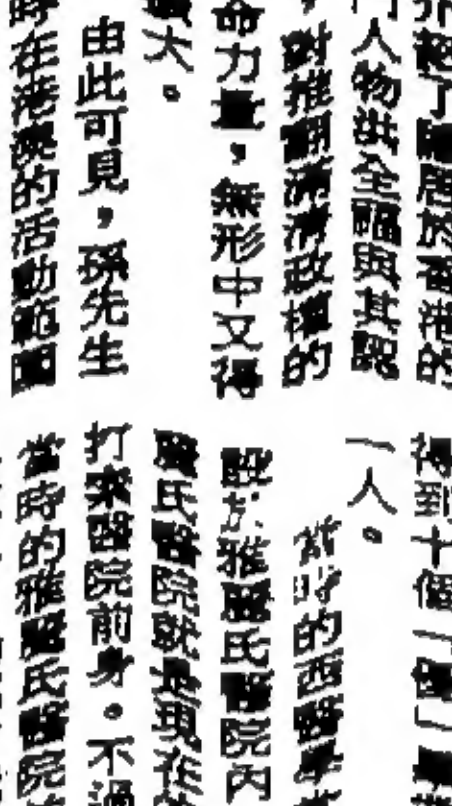 介紹了隱居於香港的
門人物洪全福與其認
，對推翻滿清政權的
命力量，無形中又得
大。
由此可見，孫先生
時在港澳的活動範圍
得到十個「個」
一人。
當時的西醫學
設於雅麗氏醫院內
麗氏醫院就是現在
打素醫院前身。不過
當時的雅麗氏醫院